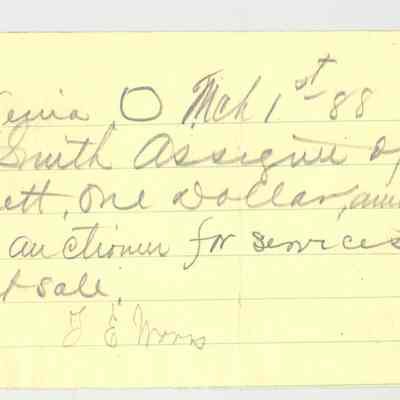 enia, O Mch 1st - 88
Smith Assignee of
ett, One Dollar, am
auctioner for services
t sale.